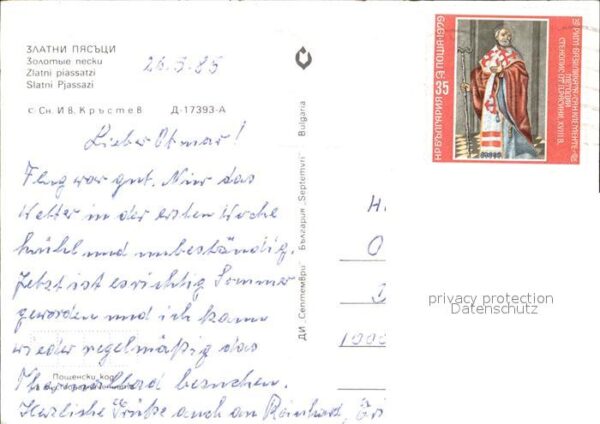 ЗЛАТНИ ПЯСЪЦИ
Золотые пески
Zlatni piassatzi
Slatni Pjassazi
26.9.85
Сн. Ив. Кръстев Д-17393-А
Lieber Otmar!
Flug war gut. Nur das
Wetter in der ersten Woche
kühl und unbeständig.
Jetzt ist es richtig Sommer
geworden und ich kann
wieder regelmäßig das
Thermalbad besuchen.
Herzliche Grüße auch an Reinhard,
Пощенски код
ДИ „Септември" България „Septemvri" Bulgaria
НР БЪЛГАРИЯ ПОЩА 1979
35
H.
O
1000
privacy protection
Datenschutz